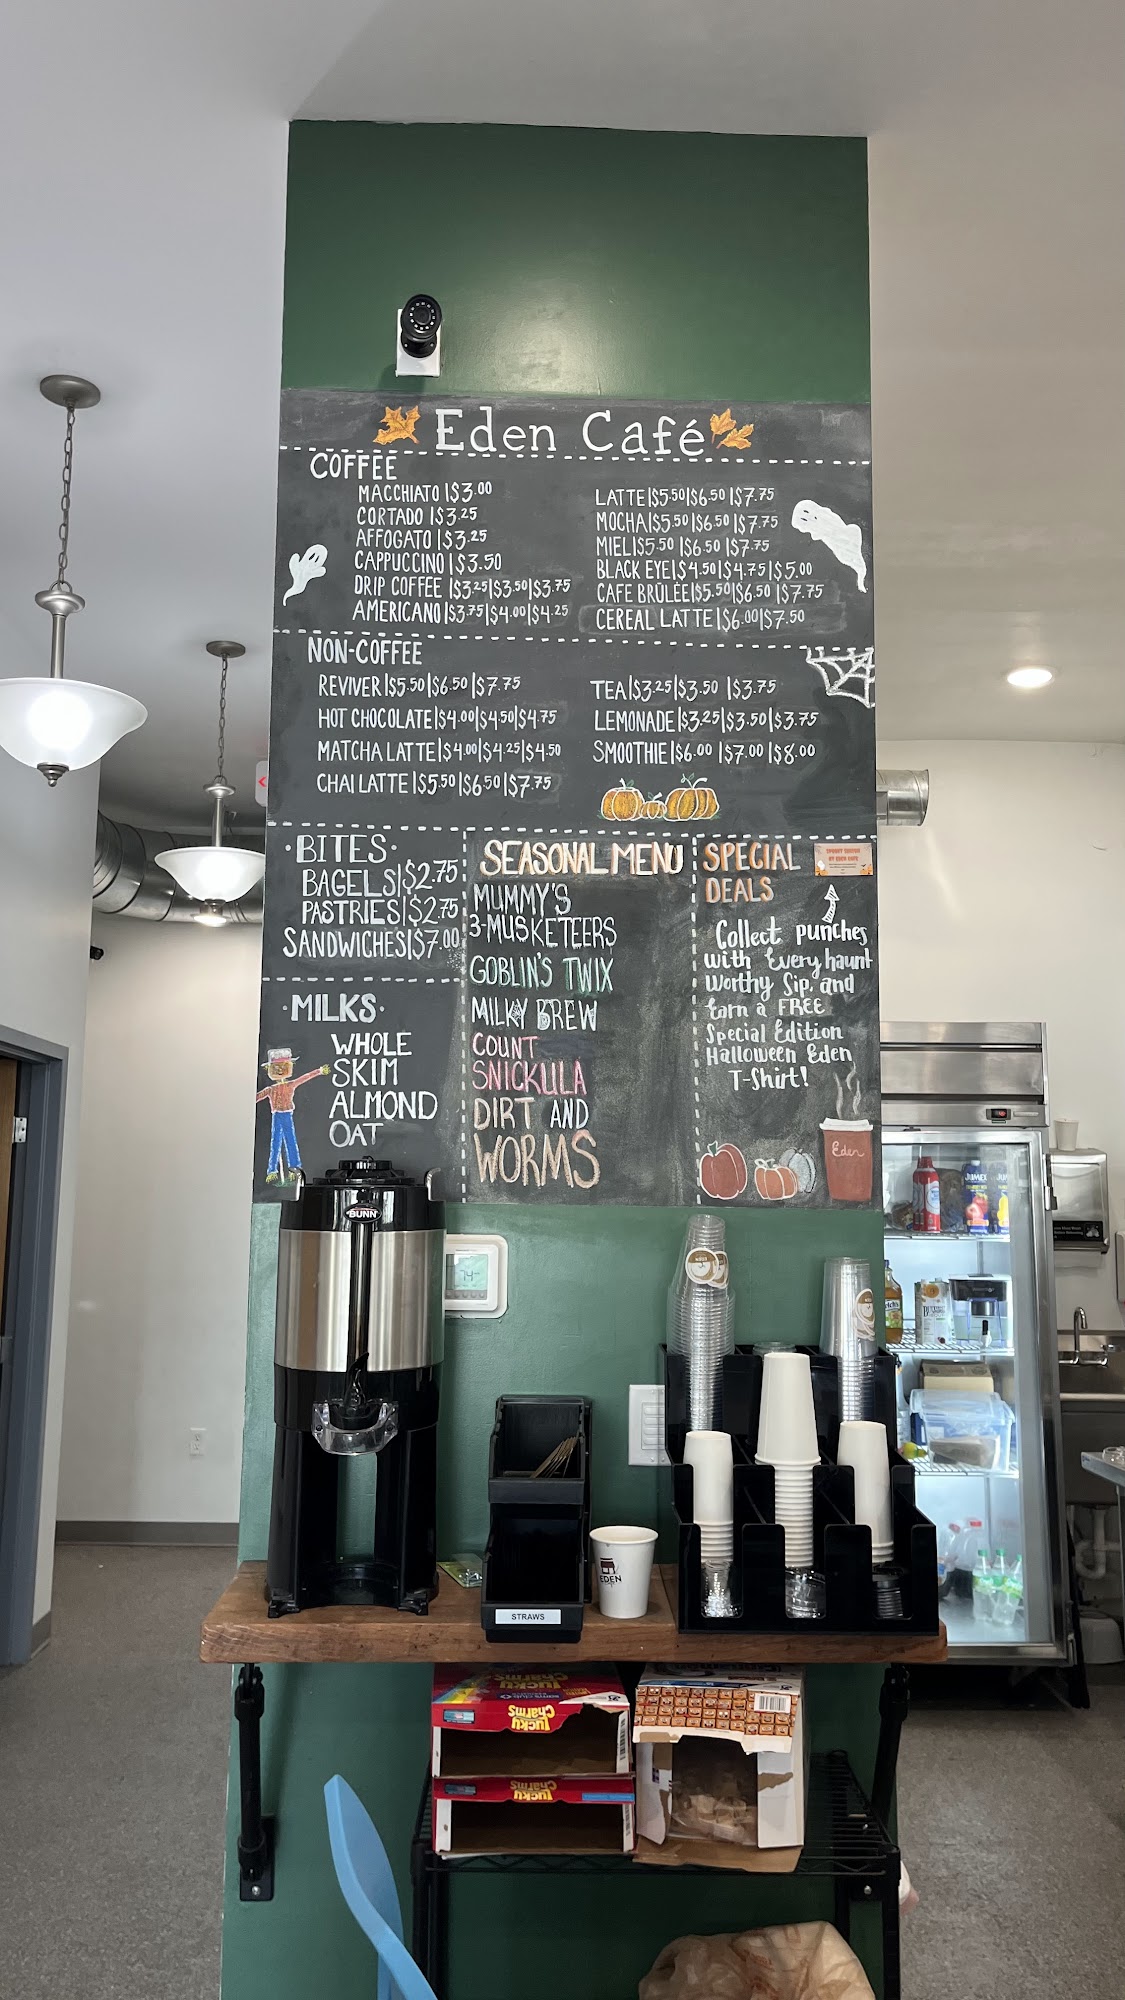 Eden Café
COFFEE
MACCHIATO |$3.00
CORTADO |$3.25
AFFOGATO |$3.25
CAPPUCCINO |$3.50
DRIP COFFEE |$3.25|$3.50|$3.75
AMERICANO|$3.75|$4.00|$4.25
LATTE|$5.50|$6.50|$7.75
MOCHA|$5.50|$6.50|$7.75
MIEL|$5.50|$6.50|$7.75
BLACK EYE|$4.50|$4.75|$5.00
CAFE BRÛLÉE|$5.50|$6.50|$7.75
CEREAL LATTE|$6.00|$7.50
NON-COFFEE
REVIVER|$5.50|$6.50|$7.75
HOT CHOCOLATE|$4.00|$4.50|$4.75
MATCHA LATTE|$4.00|$4.25|$4.50
CHAI LATTE|$5.50|$6.50|$7.75
TEA|$3.25|$3.50|$3.75
LEMONADE|$3.25|$3.50|$3.75
SMOOTHIE|$6.00|$7.00|$8.00
·BITES·
BAGELS|$2.75
PASTRIES|$2.75
SANDWICHES|$7.00
·MILKS·
WHOLE
SKIM
ALMOND
OAT
SEASONAL MENU
MUMMY'S
3-MUSKETEERS
GOBLIN'S TWIX
MILKY BREW
COUNT
SNICKULA
DIRT AND
WORMS
SPECIAL
DEALS
Collect punches
with Every haunt
worthy Sip, and
Earn a FREE
Special Edition
Halloween Eden
T-Shirt!
Eden
BUNN
74
JUMEX
STRAWS
EDEN
Lucky
Charms
Lucky
Charms